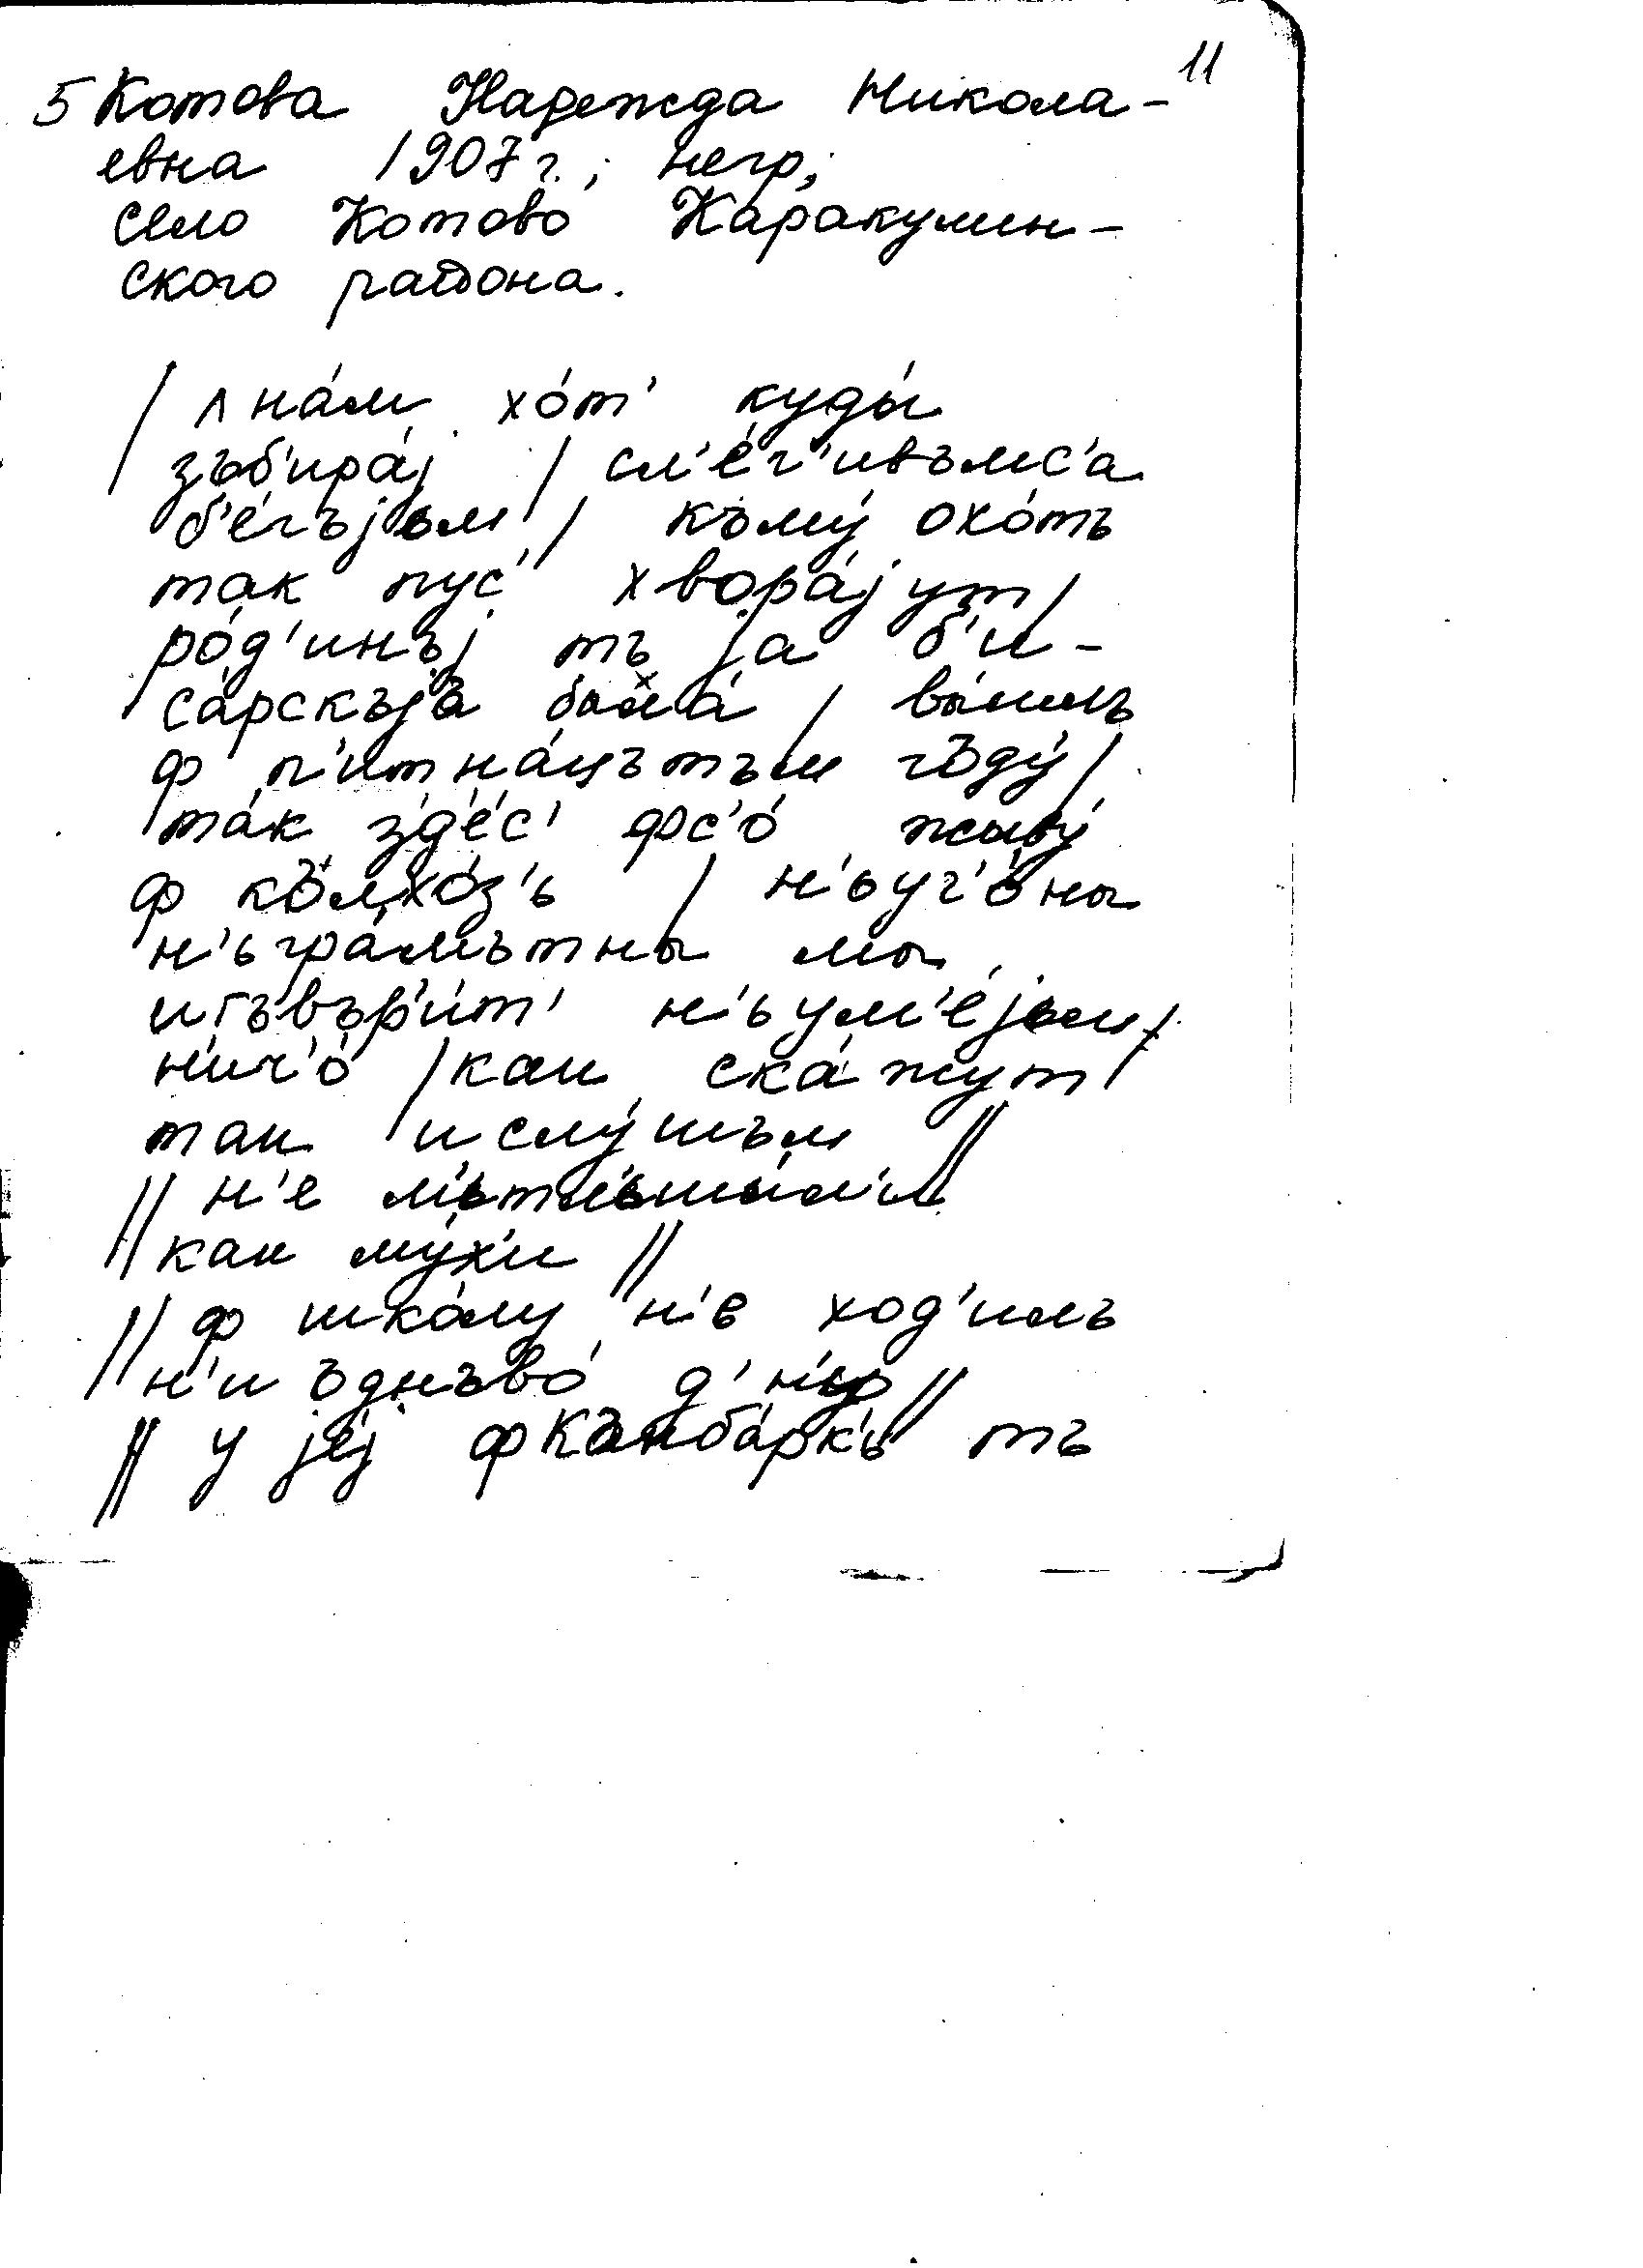 11
5 Котова Надежда Никола-
евна 1907 г.; негр;
село Котово Каракулин-
ского района.
/ ʌ на́м хо́т' куды́
зъб'ира́j / см'е́г'ивъмс'а
б'е́гъjьм / къму́ охо́тъ
так пус' хвора́jут /
ро́д'инъj тъ jа б'и-
са́рскъjъ была́ / вы́шлъ
ф п'итна́цътъм гъду́ /
та́к зд'е́с' фс'о́ жыву́
ф колхо́з'ь / н'ьуч'о́ны
н'ьгра́мътны мы
и гъвър'и́т' н'ьум'е́jьм /
нич'о́ / как ска́жут /
так и слу́шъм //
// н'е м'ьт'ьшы́л'и
как му́х'и //
// ф шко́лу н'е ход'илъ
н'и ъднъво́ д'н'ьо //
// у jеj ф Къмба́рк'ь тъ